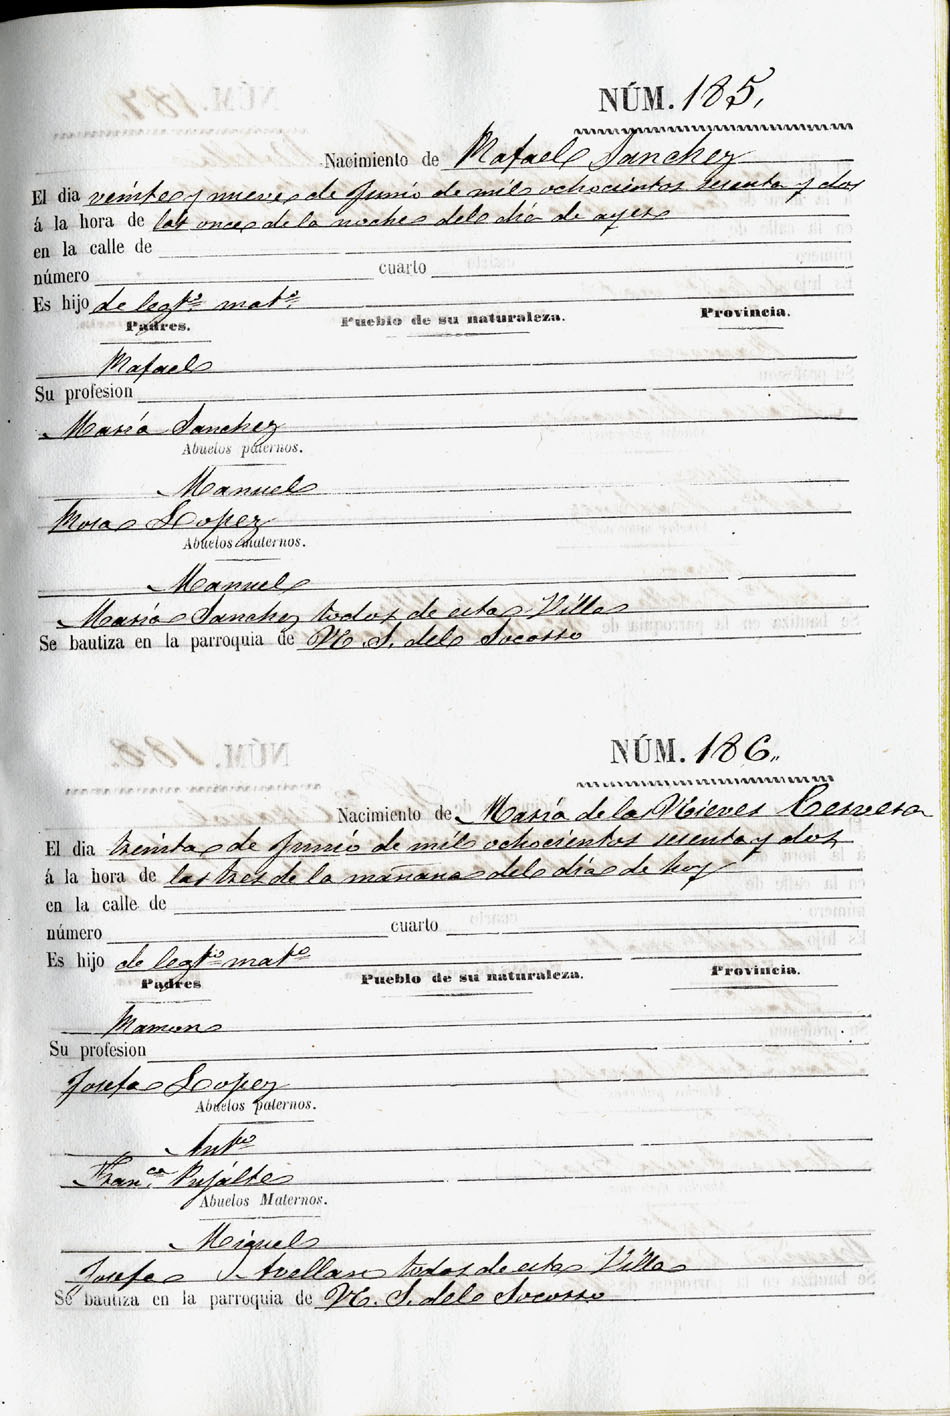 NÚM. 185.
Nacimiento de Rafael Sanchez
El dia veinte y nueve de Junio de mil ochocientos sesenta y dos
á la hora de las once de la noche del dia de ayer
en la calle de
número cuarto
Es hijo de legto. mato.
Padres. Pueblo de su naturaleza. Provincia.
Rafael
Su profesion
María Sanchez
Abuelos paternos.
Manuel
Rosa Lopez
Abuelos maternos.
Manuel
María Sanchez todos de esta Villa
Se bautiza en la parroquia de N. S. del Socorro
NÚM. 186.
Nacimiento de María de las Nieves Cervera
El dia treinta de Junio de mil ochocientos sesenta y dos
á la hora de las tres de la mañana del dia de hoy
en la calle de
número cuarto
Es hijo de legto. mato.
Padres Pueblo de su naturaleza. Provincia.
Ramon
Su profesion
Josefa Lopez
Abuelos paternos.
Anto
Franca. Pujalte
Abuelos Maternos.
Miguel
Josefa S. Avellan todos de esta Villa
Se bautiza en la parroquia de N. S. del Socorro